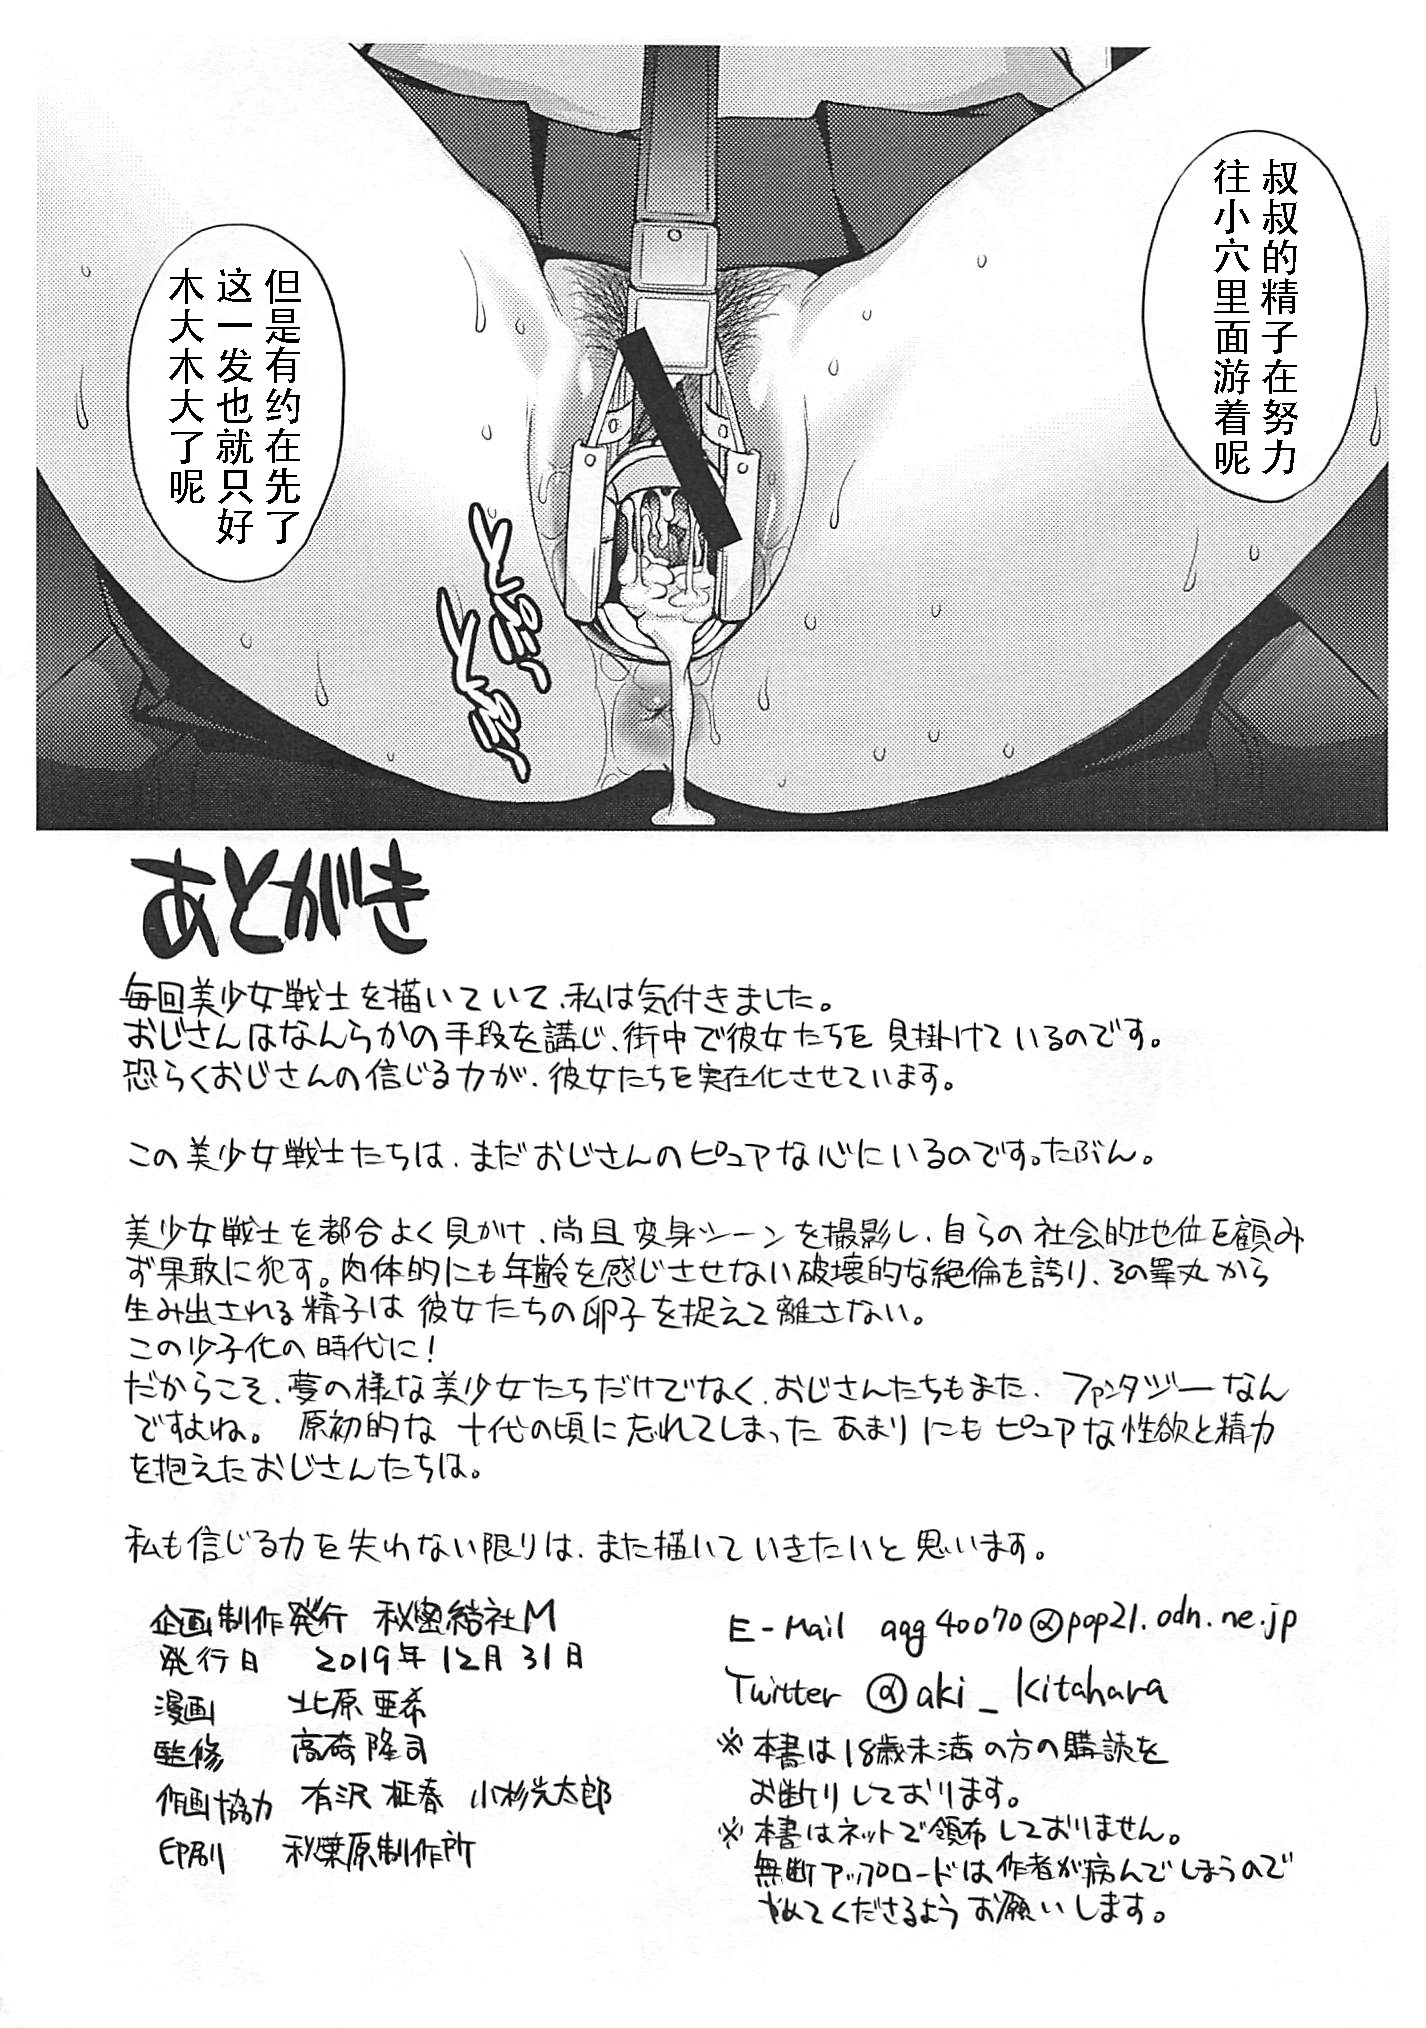 叔叔的精子在努力
往小穴里面游着呢
但是有约在先了
这一发也就只好
木大木大了呢
あとがき
毎回美少女戦士を描いていて、私は気付きました。
おじさんはなんらかの手段を講じ、街中で彼女たちを見掛けているのです。
恐らくおじさんの信じる力が、彼女たちを実在化させています。
この美少女戦士たちは、まだおじさんのピュアな心にいるのです。たぶん。
美少女戦士を都合よく見かけ、尚且変身シーンを撮影し、自らの社会的地位を顧み
ず果敢に犯す。肉体的にも年齢を感じさせない破壊的な絶倫を誇り、その睾丸から
生み出される精子は彼女たちの卵子を捉えて離さない。
この少子化の時代に!
だからこそ、夢の様な美少女たちだけでなく、おじさんたちもまた、ファンタジーなん
ですよね。原初的な十代の頃に忘れてしまったあまりにもピュアな性欲と精力
を抱えたおじさんたちは。
私も信じる力を失わない限りは、また描いていきたいと思います。
企画制作発行 秘密結社M
発行日 2019年12月31日
漫画 北原亜希
監修 高崎隆司
作画協力 有沢 征春 小杉光太郎
印刷 秋葉原制作所
E-Mail agg40070@pop21.odn.ne.jp
Twitter @aki_kitahara
※本書は18歳未満の方の購読を
お断りしております。
※本書はネットで頒布しておりません。
無断アップロードは作者が病んでしまうので
やめてくださるようお願いします。